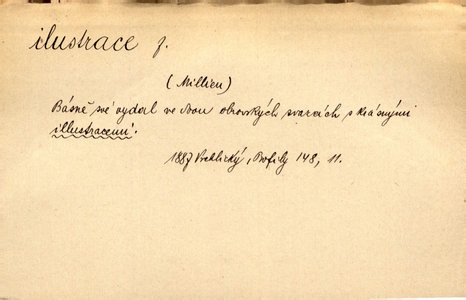 ilustrace f.
(Millien)
Básně své vydal ve dvou obrovských svazcích s krásnými
illustracemi.
1887 Vrchlický, Profily 148, 11.